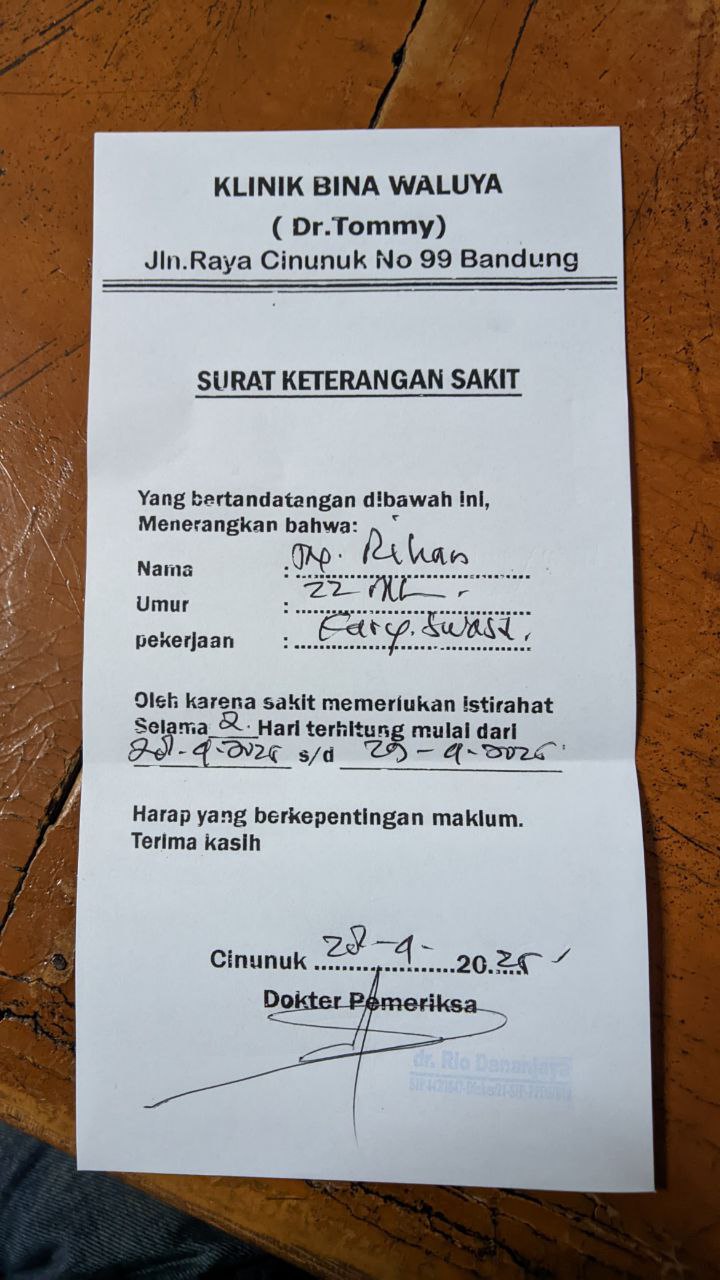 KLINIK BINA WALUYA
( Dr.Tommy)
Jln.Raya Cinunuk No 99 Bandung
SURAT KETERANGAN SAKIT
Yang bertandatangan dibawah ini,
Menerangkan bahwa:
Nama : Rihan
Umur : 22
pekerjaan : Kary. Swast.
Oleh karena sakit memerlukan Istirahat
Selama 2. Hari terhitung mulai dari
28-9-2025 s/d 29-9-2025
Harap yang berkepentingan maklum.
Terima kasih
Cinunuk 28-9- 20.25
Dokter Pemeriksa
dr. Rio Dananjaya